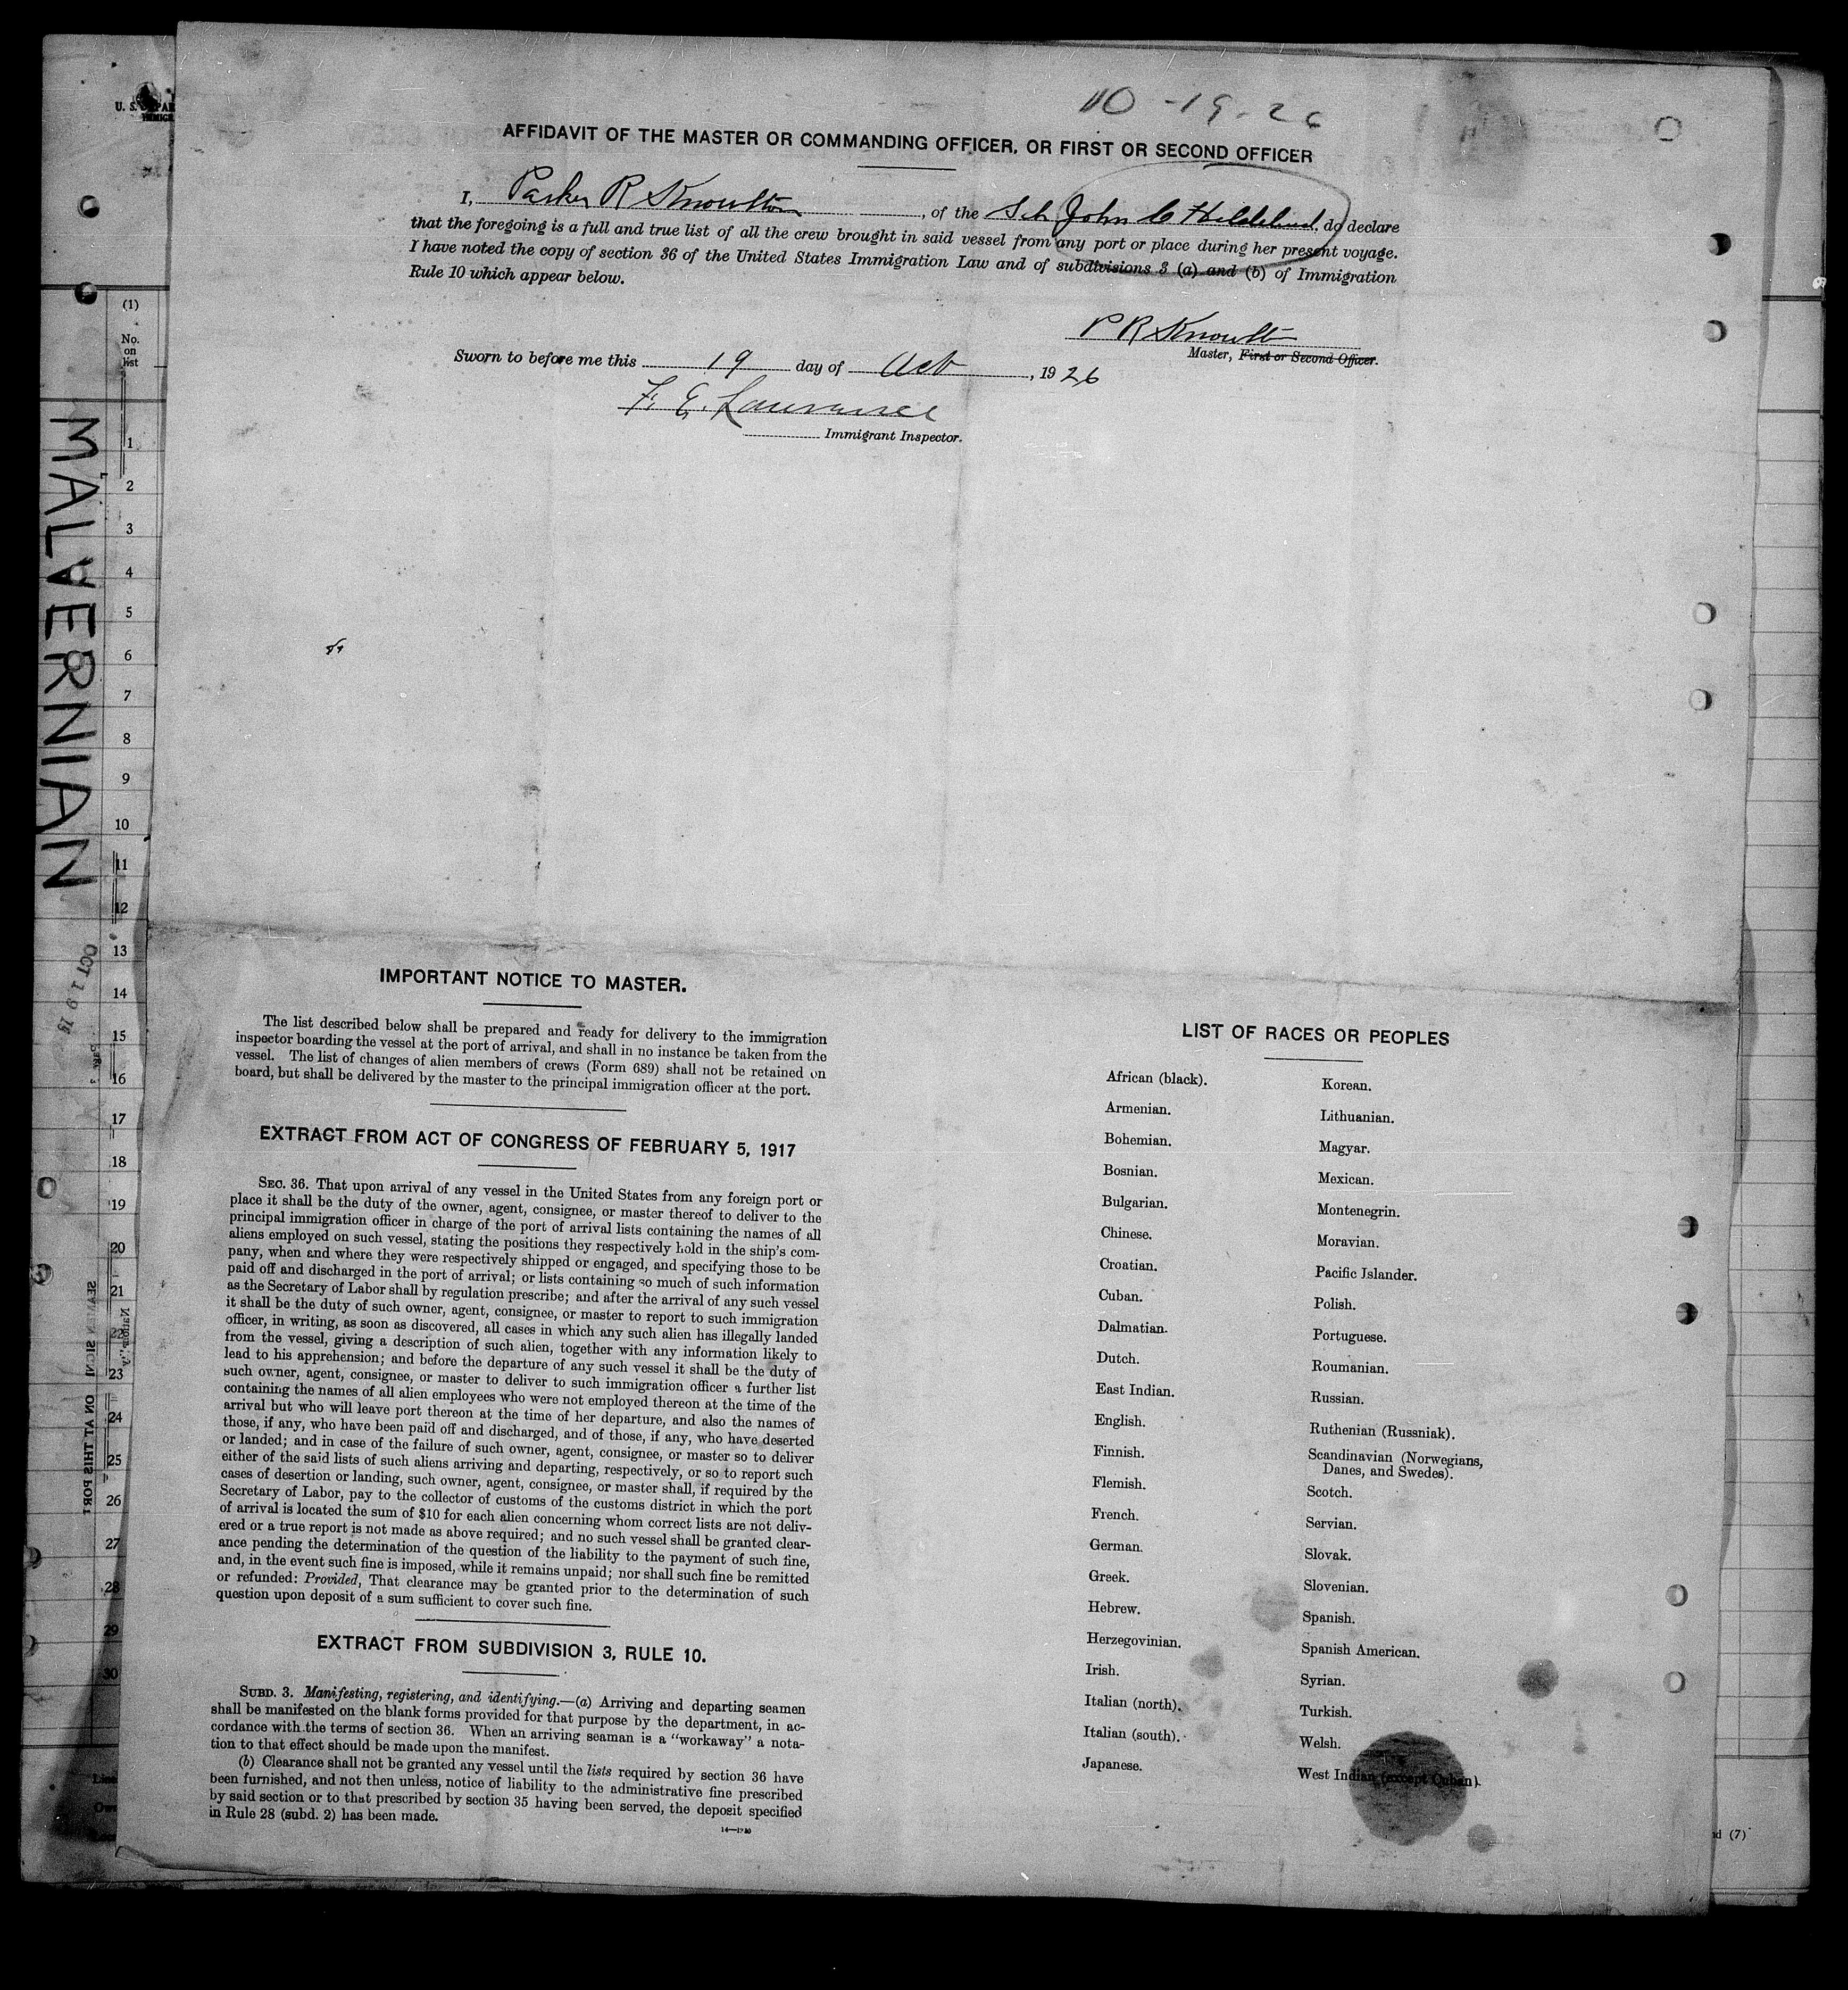 10-19-26
AFFIDAVIT OF THE MASTER OR COMMANDING OFFICER, OR FIRST OR SECOND OFFICER
I, Parker R Knowlton, of the Sch John C, do declare
that the foregoing is a full and true list of all the crew brought in said vessel from any port or place during her present voyage.
I have noted the copy of section 36 of the United States Immigration Law and of subdivisions 3 (a) and (b) of Immigration
Rule 10 which appear below.
P R Knowlton
Master, First or Second Officer.
Sworn to before me this 19 day of Oct, 1926
F. E. Lawrence
Immigrant Inspector.
IMPORTANT NOTICE TO MASTER.
The list described below shall be prepared and ready for delivery to the immigration
inspector boarding the vessel at the port of arrival, and shall in no instance be taken from the
vessel. The list of changes of alien members of crews (Form 689) shall not be retained on
board, but shall be delivered by the master to the principal immigration officer at the port.
EXTRACT FROM ACT OF CONGRESS OF FEBRUARY 5, 1917
SEC. 36. That upon arrival of any vessel in the United States from any foreign port or
place it shall be the duty of the owner, agent, consignee, or master thereof to deliver to the
principal immigration officer in charge of the port of arrival lists containing the names of all
aliens employed on such vessel, stating the positions they respectively hold in the ship's com-
pany, when and where they were respectively shipped or engaged, and specifying those to be
paid off and discharged in the port of arrival; or lists containing so much of such information
as the Secretary of Labor shall by regulation prescribe; and after the arrival of any such vessel
it shall be the duty of such owner, agent, consignee, or master to report to such immigration
officer, in writing, as soon as discovered, all cases in which any such alien has illegally landed
from the vessel, giving a description of such alien, together with any information likely to
lead to his apprehension; and before the departure of any such vessel it shall be the duty of
such owner, agent, consignee, or master to deliver to such immigration officer a further list
containing the names of all alien employees who were not employed thereon at the time of the
arrival but who will leave port thereon at the time of her departure, and also the names of
those, if any, who have been paid off and discharged, and of those, if any, who have deserted
or landed; and in case of the failure of such owner, agent, consignee, or master so to deliver
either of the said lists of such aliens arriving and departing, respectively, or so to report such
cases of desertion or landing, such owner, agent, consignee, or master shall, if required by the
Secretary of Labor, pay to the collector of customs of the customs district in which the port
of arrival is located the sum of $10 for each alien concerning whom correct lists are not deliv-
ered or a true report is not made as above required; and no such vessel shall be granted clear-
ance pending the determination of the question of the liability to the payment of such fine,
and, in the event such fine is imposed, while it remains unpaid; nor shall such fine be remitted
or refunded: Provided, That clearance may be granted prior to the determination of such
question upon deposit of a sum sufficient to cover such fine.
EXTRACT FROM SUBDIVISION 3, RULE 10.
SUBD. 3. Manifesting, registering, and identifying.—(a) Arriving and departing seamen
shall be manifested on the blank forms provided for that purpose by the department, in ac-
cordance with the terms of section 36. When an arriving seaman is a "workaway" a nota-
tion to that effect should be made upon the manifest.
(b) Clearance shall not be granted any vessel until the lists required by section 36 have
been furnished, and not then unless, notice of liability to the administrative fine prescribed
by said section or to that prescribed by section 35 having been served, the deposit specified
in Rule 28 (subd. 2) has been made.
LIST OF RACES OR PEOPLES
African (black).
Armenian.
Bohemian.
Bosnian.
Bulgarian.
Chinese.
Croatian.
Cuban.
Dalmatian.
Dutch.
East Indian.
English.
Finnish.
Flemish.
French.
German.
Greek.
Hebrew.
Herzegovinian.
Irish.
Italian (north).
Italian (south).
Japanese.
Korean.
Lithuanian.
Magyar.
Mexican.
Montenegrin.
Moravian.
Pacific Islander.
Polish.
Portuguese.
Roumanian.
Russian.
Ruthenian (Russniak).
Scandinavian (Norwegians,
Danes, and Swedes).
Scotch.
Servian.
Slovak.
Slovenian.
Spanish.
Spanish American.
Syrian.
Turkish.
Welsh.
West Indian (except Cuban).
MALVERNIAN
(1)
No.
on
list
1
2
3
4
5
6
7
8
9
10
11
12
13
14
15
16
17
18
19
20
21
22
23
24
25
26
27
28
29
30
OCT 19
ON AT THIS PORT
(7)